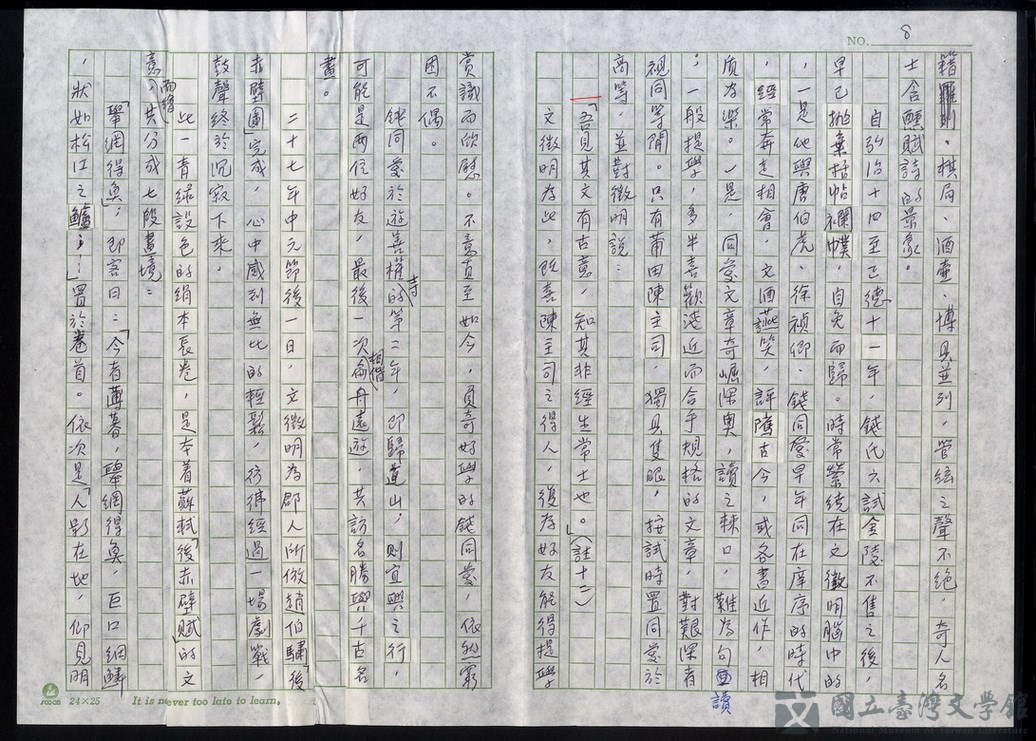 NO. 8
籍羅列，棋局、酒壺、博具並列，管絃之聲不絕，奇人名
士含醺賦詩的景象。
自弘治十四至正德十一年，錢氏六試金陵不售之後，
早已拋棄括帖襴幞，自免而歸。時常縈繞在文徵明腦中的
，一是他與唐伯虎、徐禎卿、錢同愛早年同在庠序的時代
，經常奔走相會，文酒讌笑，評隲古今，或各書近作，相
质为樂。一是，同愛文章奇崛深奧，讀之棘口，難為句讀
；一般提學，多半喜歡淺近而合乎規格的文章，對艱深者
視同等閒。只有莆田陳主司，獨具隻眼，按試時置同愛於
高等，並對徵明說：
「吾見其文有古意，知其非經生常士也。」（註十二）
文徵明為此，既喜陳主司之得人，復為好友能得提學
賞識而欣慰。不意直至如今，負奇好學的錢同愛，依然窮
困不偶。
錢同愛於遊善權寺的第二年，即歸道山；則宜興之行，
可能是兩位好友，最後一次相偕舟遠遊，共訪名勝與千古名
畫。
二十七年中元節後一日，文徵明為郡人所倣趙伯驌「後
赤壁圖」完成，心中感到無比的輕鬆，彷彿經過一場劇戰，
鼓聲終於沉寂下來。
此一青綠設色的絹本長卷，是本着蘇軾「後赤壁賦」的文
意而繪，共分成七段畫境：
「舉網得魚」；即客曰：「今者薄暮，舉網得魚，巨口細鱗
，狀如松江之鱸……」置於卷首。依次是「人影在地，仰見明
24×25
It is never too late to learn,
國立臺灣文學館
National Museum of Taiwan Literature